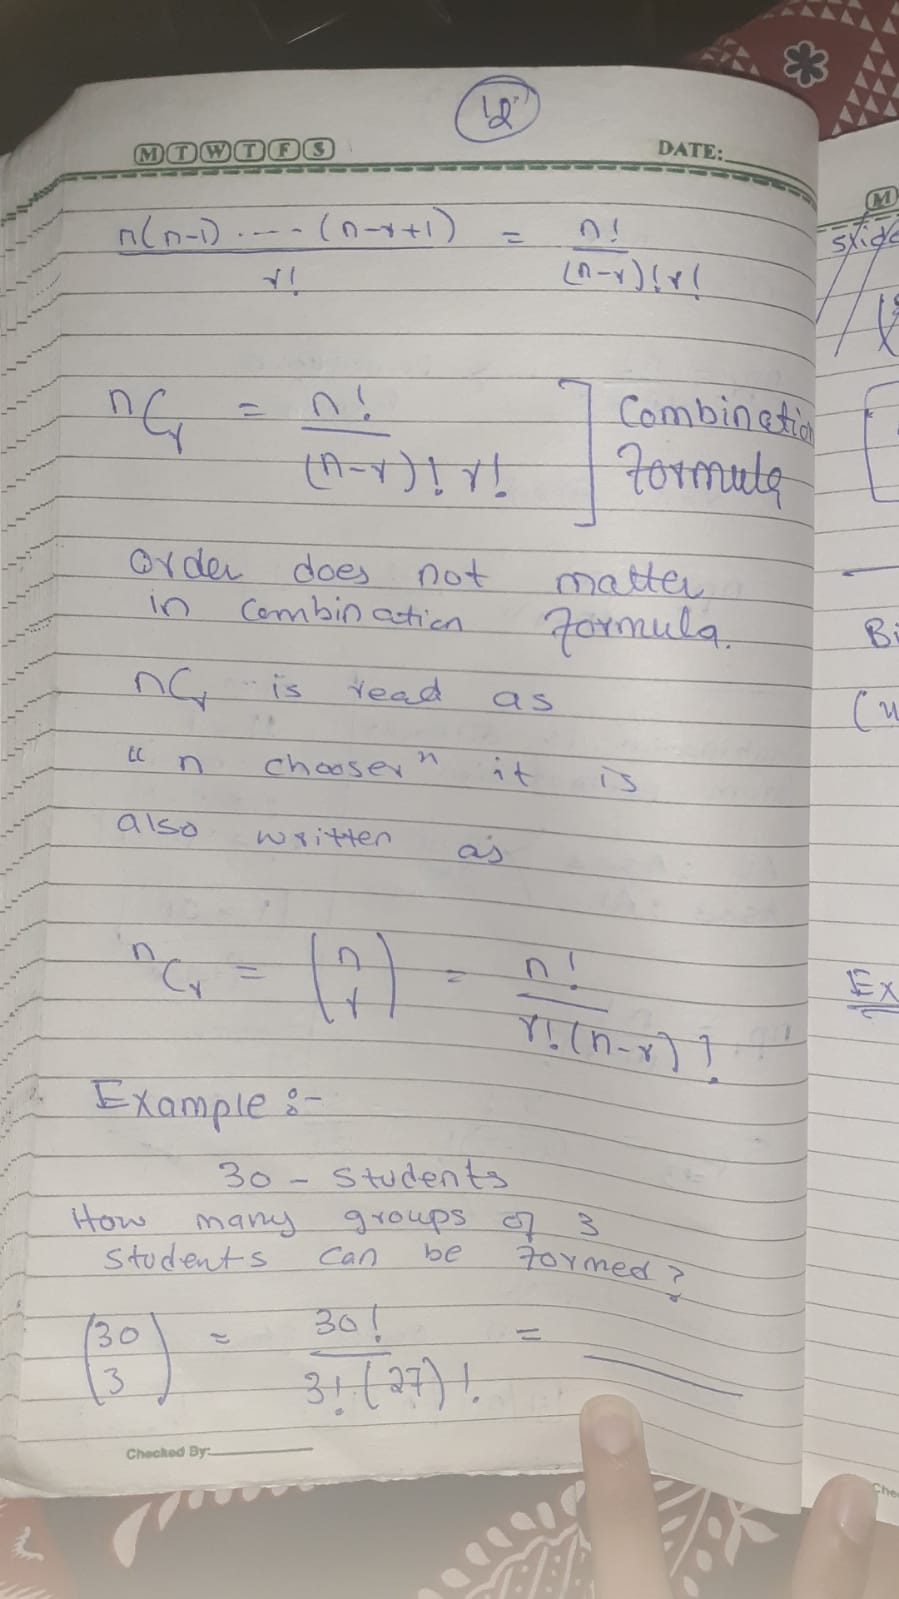 12
M T W T F S DATE:
n(n-1) .---- (n-r+1) / r! = n! / (n-r)! r!
nCr = n! / (n-r)! r! ] Combination Formula
order does not matter
in Combination Formula.
nCr is read as
“ n chooser” it is
also written as
nCr = (n r) = n! / r!(n-r)!
Example :-
30 - Students
How many groups of 3
Students can be Formed?
(30 3) = 30! / 3!(27)! =
Checked By:
M
slide
Bi
Ex
Che